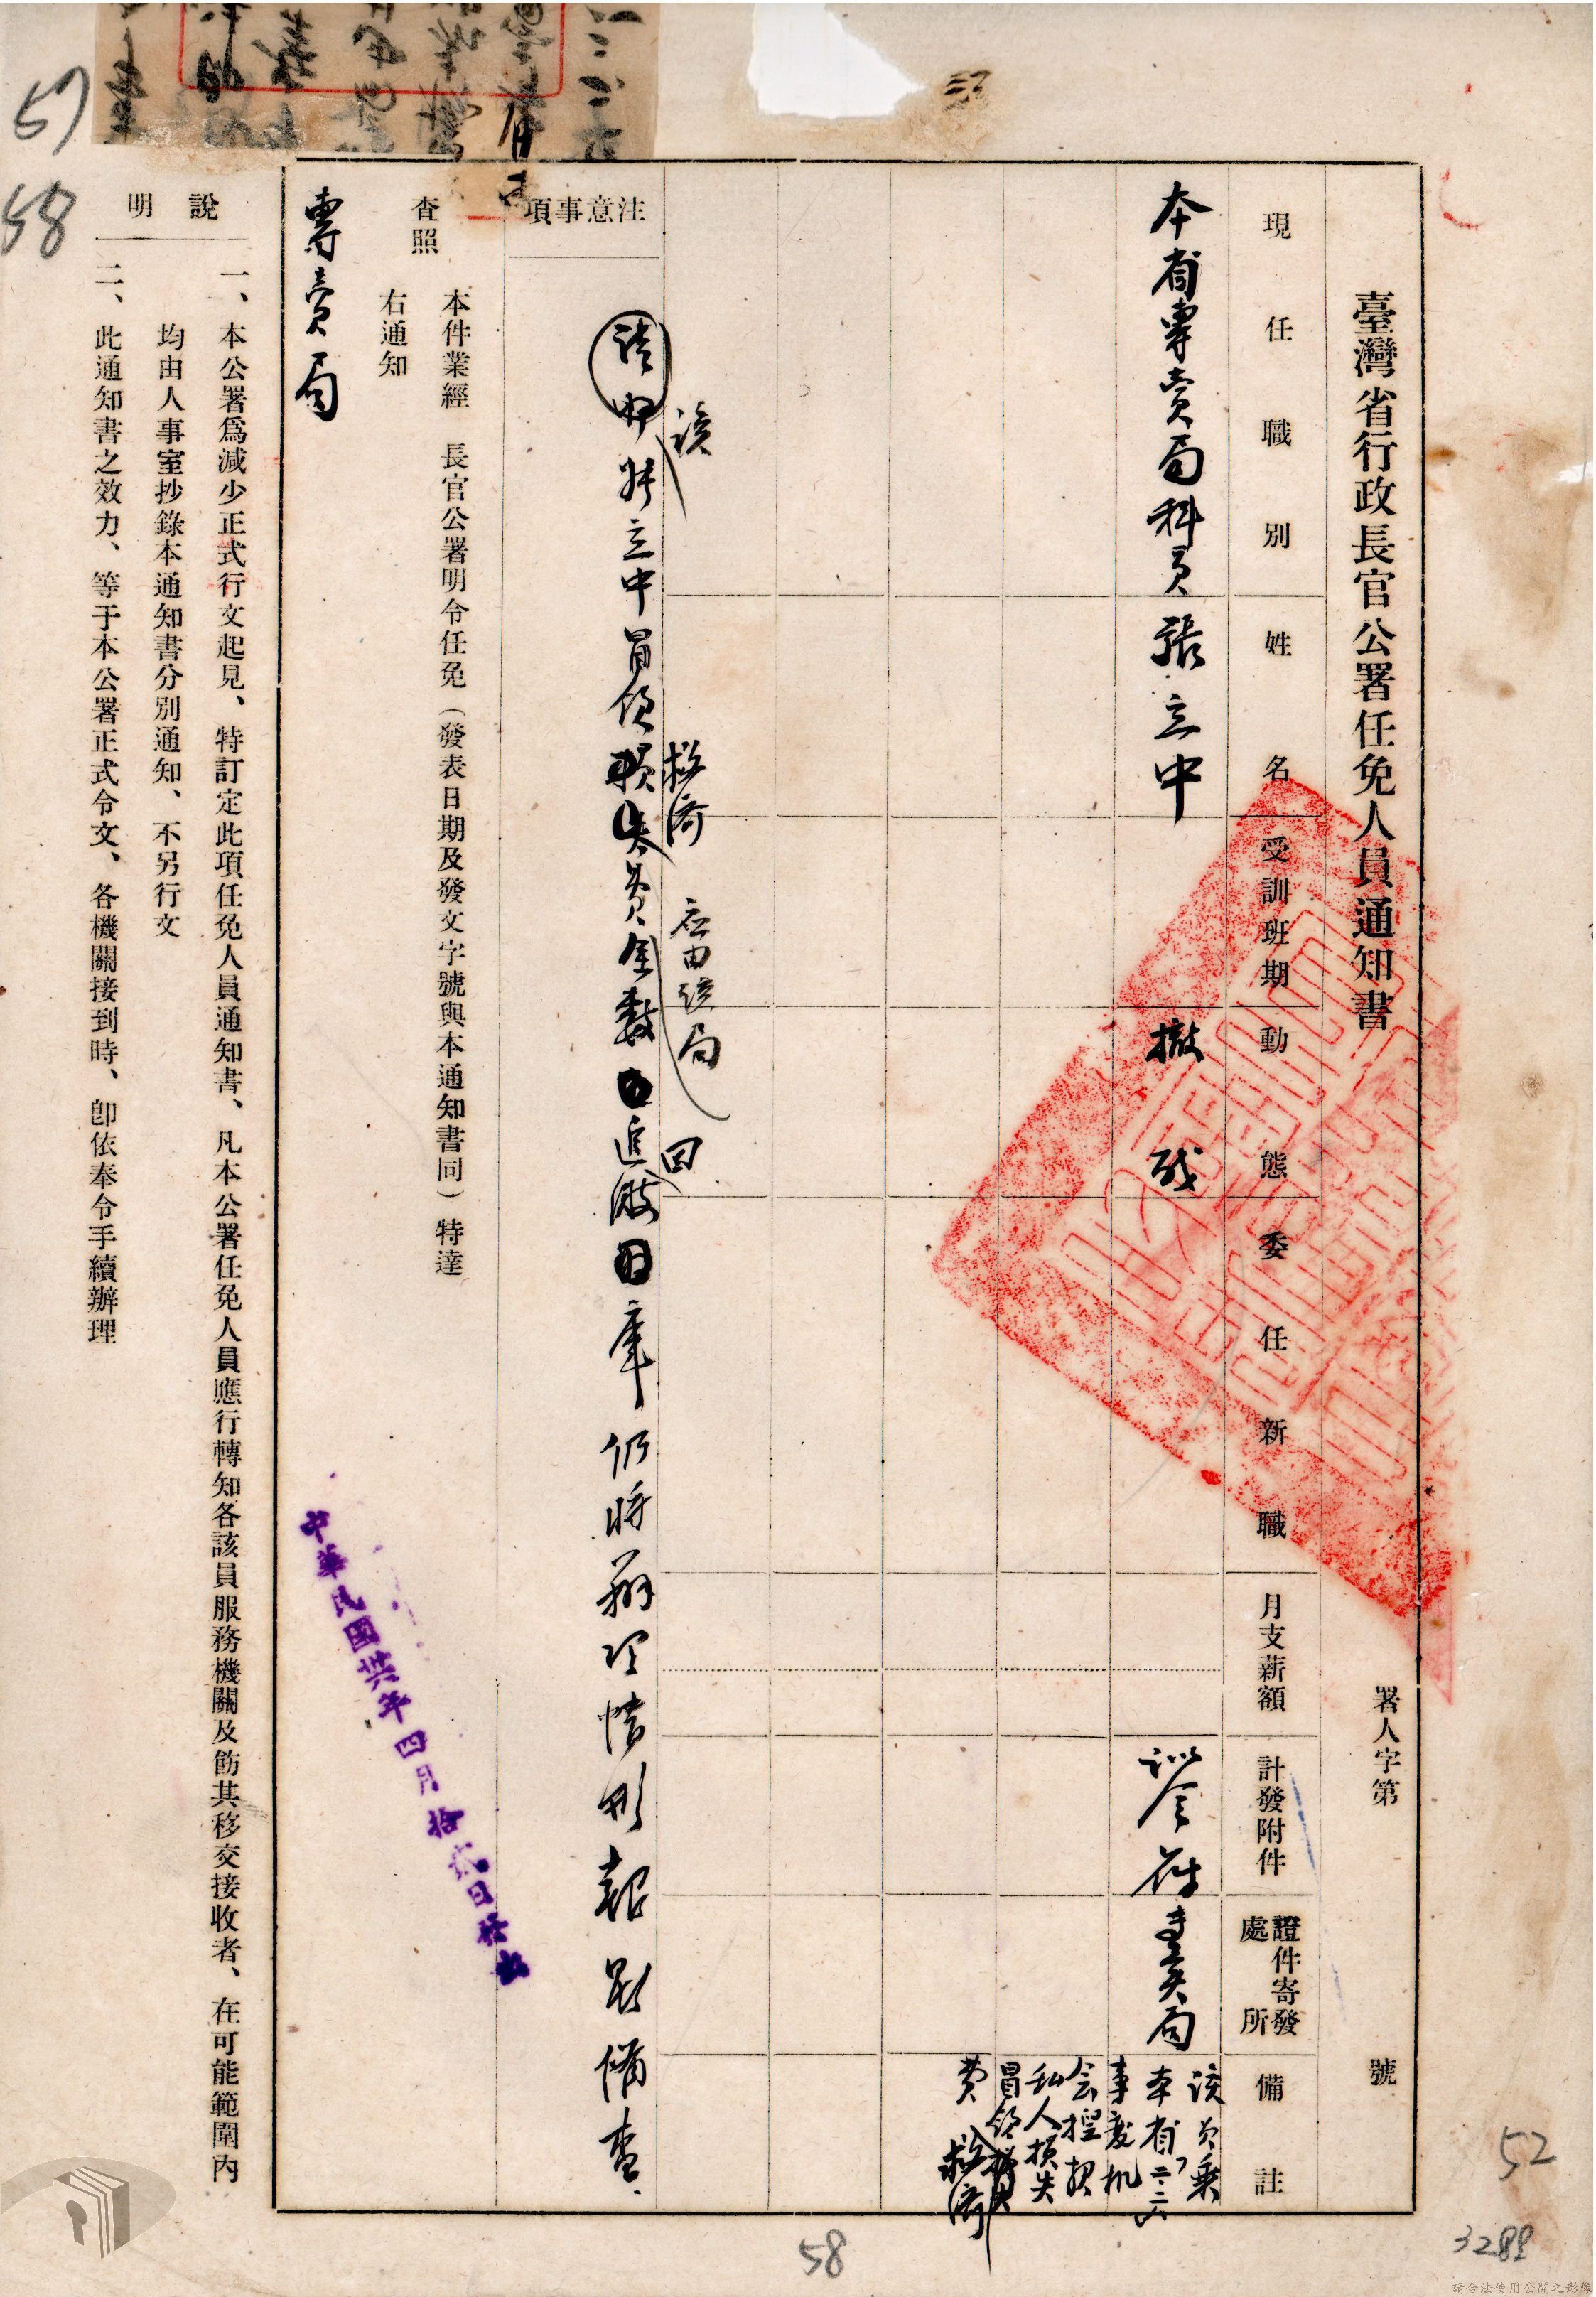 臺灣省行政長官公署任免人員通知書
署人字第 號
現任職別
姓名
受訓班期
動態
委任新職
月支薪額
計發附件
證件寄發處所
備註
本省專賣局科員
張立中
撤職
訓令一件
專賣局
該員乘
本省二、二八
事變機
會捏報
私人損失
冒領救濟
費
注意事項
該張立中冒領救濟費全數應由該局追繳回庫仍將辦理情形報署備查
本件業經 長官公署明令任免（發表日期及發文字號與本通知書同）特達
查照
右通知
專賣局
中華民國卅六年四月拾貳日發出
說明
一、本公署爲減少正式行文起見、特訂定此項任免人員通知書、凡本公署任免人員應行轉知各該員服務機關及飭其移交接收者、在可能範圍內
均由人事室抄錄本通知書分別通知、不另行文
二、此通知書之效力、等于本公署正式令文、各機關接到時、卽依奉令手續辦理
57
58
52
58
3289
請合法使用公開之影像